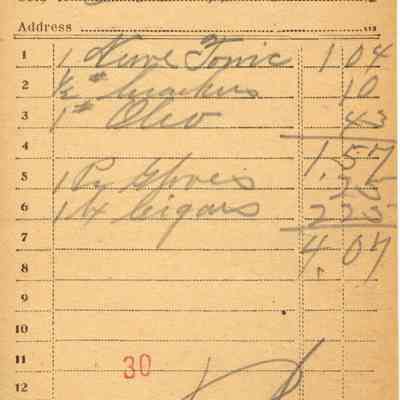 Address
1 1 Nerve Tonic 1 04
2 ½# Crackers 10
3 1# Oleo 43
4 1.57
5 1 Pr Gloves 25
6 1 bx Cigars 2 25
7 4.07
8
9
10
11 30
12